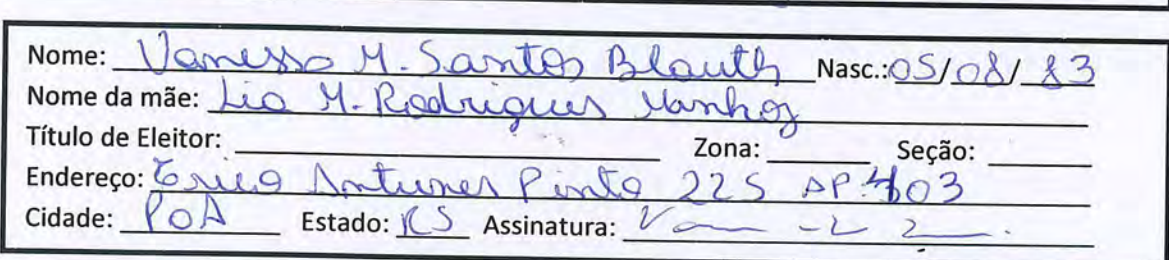 Nome: Vanessa M. Santos Blauth Nasc.: 05/08/83
Nome da mãe: Lia M. Rodrigues
Título de Eleitor: Zona: Seção:
Endereço: Antunes Pinto 225 AP. 403
Cidade: POA Estado: RS Assinatura: